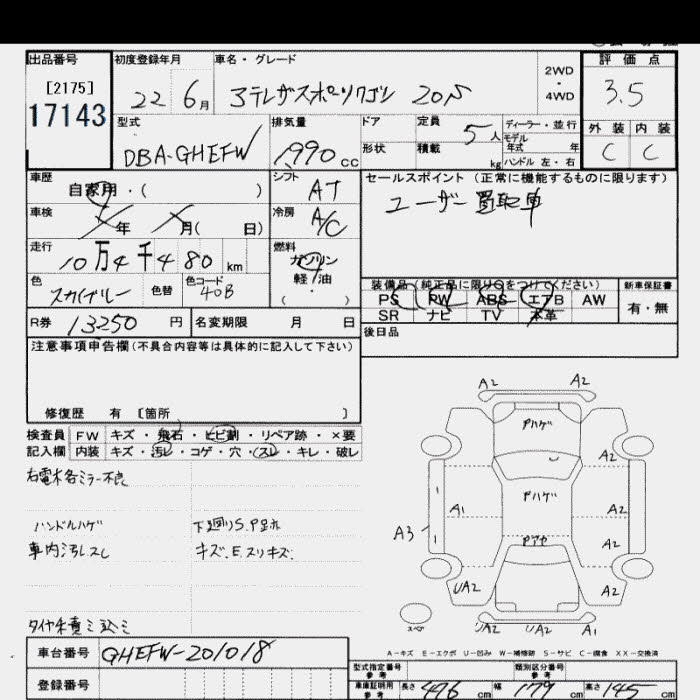 出品番号 初度登録年月 車名・グレード 2WD・4WD 評価点
[2175]
17143 22 6月 アテンザスポーツワゴン 20S 3.5
型式 排気量 ドア 定員 5人 ディーラー・並行 外装 内装
DBA-GHEFW 1990cc 形状 積載 kg モデル年式 年 C C
ハンドル 左・右
車歴 シフト セールスポイント (正常に機能するものに限ります)
自家用・( ) AT ユーザー買取車
車検 年 月( 日) 冷房 A/C
走行 燃料
10万4千480km ガソリン
軽油
( )
色 スカイブルー 色替 色コード 40B
装備品(純正品に限り○をつけてください) 新車保証書
PS PW ABS エアB AW 有・無
SR ナビ TV 本革
R券 13250円 名変期限 月 日 後日品
注意事項申告欄(不具合内容等は具体的に記入して下さい)
修復歴 有 [箇所 ]
検査員 FW キズ・飛石・ヒビ割・リペア跡・×要
記入欄 内装 キズ・汚レ・コゲ・穴・スレ・キレ・破レ
右電木各ミラー不良
ハンドルハゲ 下廻りS.P
車内汚レスレ キズ.E.スリキズ.
A2 A2
Pハゲ
A2
Pハゲ
A1 A2
A3 Pアヤ A2
UA2 A2
スペア UA2 UA2 A1
A-キズ E-エクボ U-凹み W-補修跡 S-サビ C-腐食 XX-交換済
車台番号 GHEFW-201018
登録番号
型式指定番号 参考 類別区分番号 参考
車庫証明用 参考 長さ 476cm 幅 179cm 高さ 145cm